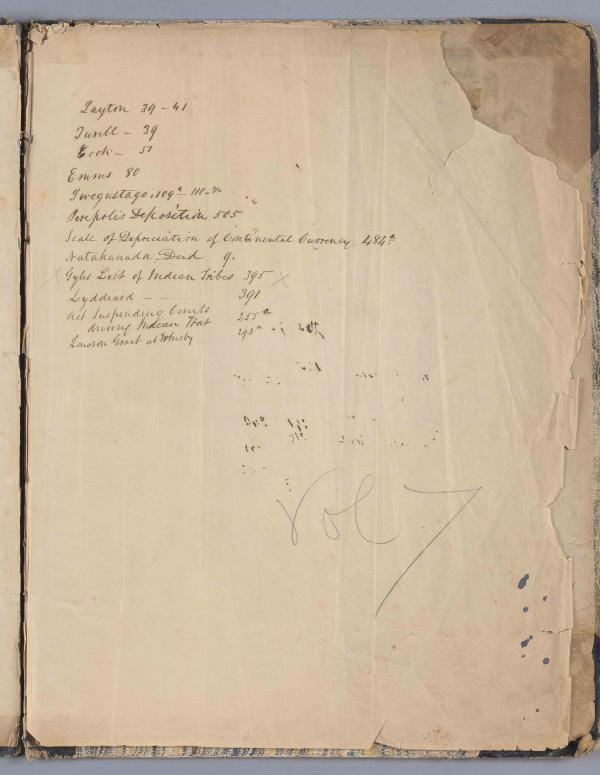 Layton 39 - 41
Turell - 39
Cock - 51
Emms 80
Twegustago. 109ª - 110
Perepolis Deposition 505
Scale of Depreciation of Continental Currency. 484ª
Natahanada Deed 9.
X Gyles List of Indian Tribes 395 X
Lyddiard - - - 391
Act Suspending Courts 255ª
during Indian War
Lawson Grant at 298ª
Vol 7